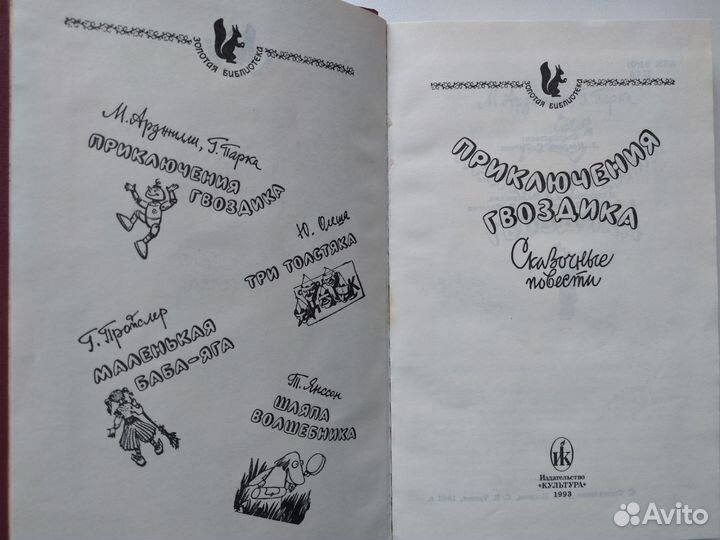 ЗОЛОТАЯ БИБЛИОТЕКА
М. Арджилли, Г. Парка
ПРИКЛЮЧЕНИЯ
ГВОЗДИКА
Ю. Олеша
ТРИ ТОЛСТЯКА
Г. Пройслер
МАЛЕНЬКАЯ
БАБА-ЯГА
Т. Янссон
ШЛЯПА
ВОЛШЕБНИКА
ЗОЛОТАЯ БИБЛИОТЕКА
ПРИКЛЮЧЕНИЯ
ГВОЗДИКА
Сказочные
повести
ИК
Издательство
«КУЛЬТУРА»
1993
Avito